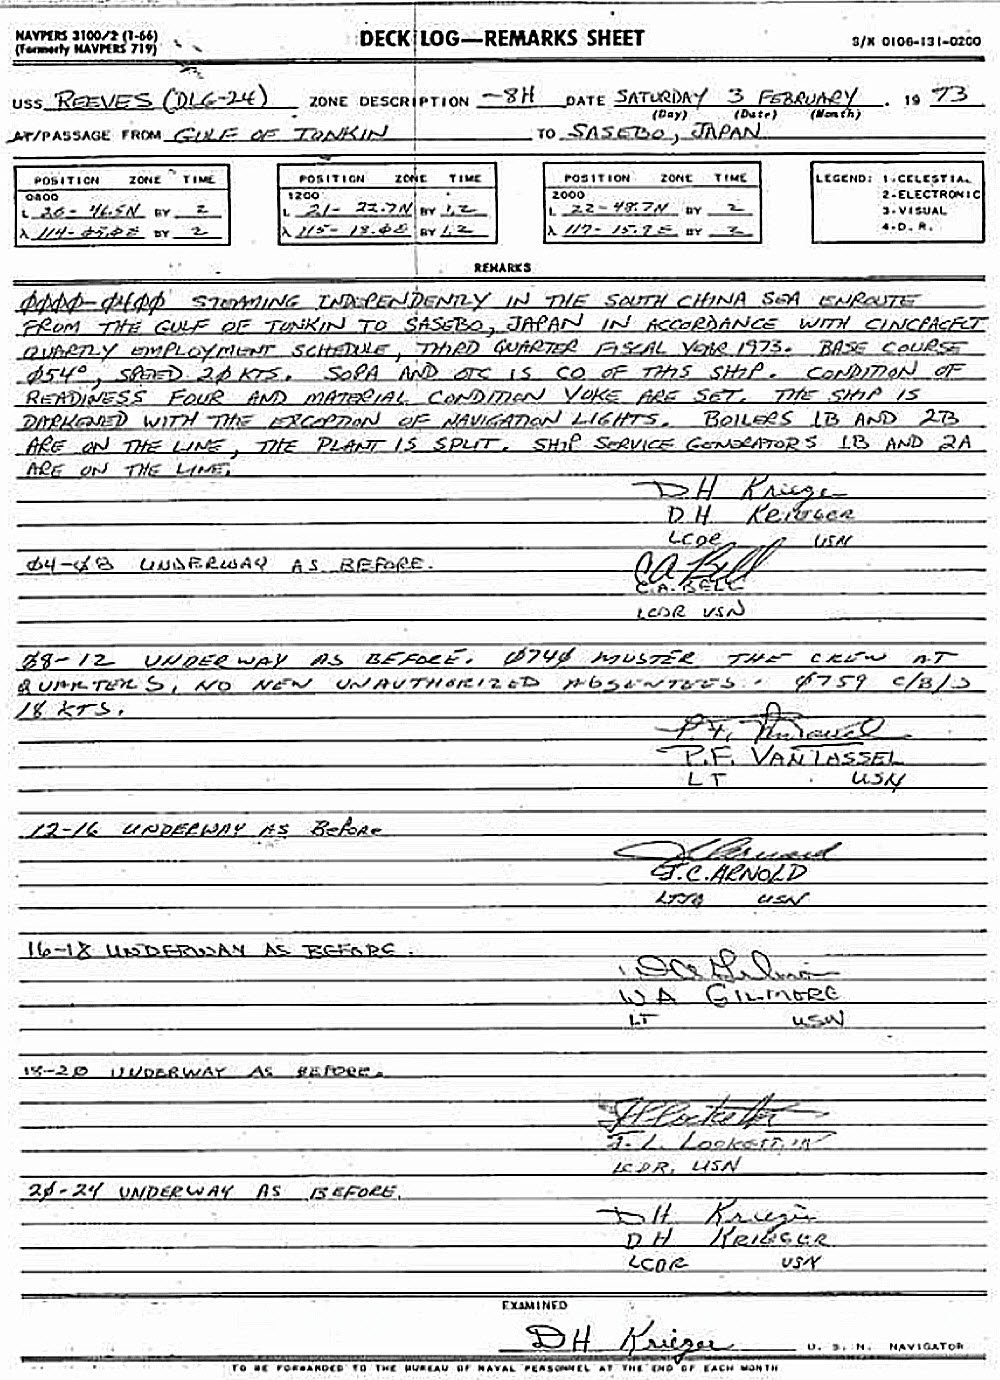 NAVPERS 3100/2 (1-66)
(Formerly NAVPERS 719)
DECK LOG—REMARKS SHEET
S/N 0106-131-0200
USS REEVES (DLG-24) ZONE DESCRIPTION -8H DATE SATURDAY 3 FEBRUARY . 19 73
(Day) (Date) (Month)
AT/PASSAGE FROM GULF OF TONKIN TO SASEBO, JAPAN
POSITION ZONE TIME
0800
L 20-46.5N BY 2
λ 114- BY 2
POSITION ZONE TIME
1200
L 21-22.7N BY 1,2
λ 115-18.0E BY 1,2
POSITION ZONE TIME
2000
L 22-48.7N BY 2
λ 117-15.7E BY 2
LEGEND: 1-CELESTIAL
2-ELECTRONIC
3-VISUAL
4-D. R.
REMARKS
0000-0400 STEAMING INDEPENDENTLY IN THE SOUTH CHINA SEA ENROUTE
FROM THE GULF OF TONKIN TO SASEBO, JAPAN IN ACCORDANCE WITH CINCPACFLT
QUARTLY EMPLOYMENT SCHEDULE, THIRD QUARTER FISCAL YEAR 1973. BASE COURSE
054°, SPEED 20 KTS. SOPA AND OTC IS CO OF THIS SHIP. CONDITION OF
READINESS FOUR AND MATERIAL CONDITION YOKE ARE SET. THE SHIP IS
DARKENED WITH THE EXCEPTION OF NAVIGATION LIGHTS. BOILERS 1B AND 2B
ARE ON THE LINE, THE PLANT IS SPLIT. SHIP SERVICE GENERATORS 1B AND 2A
ARE ON THE LINE.
DH Krieger
D.H. KRIEGER
LCDR USN
04-08 UNDERWAY AS BEFORE.
CA Bell
C.A. BELL
LCDR USN
08-12 UNDERWAY AS BEFORE. 0740 MUSTER THE CREW AT
QUARTERS, NO NEW UNAUTHORIZED ABSENTEES. 0759 C/B/S
18 KTS.
P.F. VanTassel
P.F. VANTASSEL
LT USN
12-16 UNDERWAY AS Before
J.C. ARNOLD
LTJG USN
16-18 UNDERWAY AS BEFORE.
WA Gilmore
WA GILMORE
LT USN
18-20 UNDERWAY AS BEFORE.
LCDR, USN
20-24 UNDERWAY AS BEFORE.
DH Krieger
DH KRIEGER
LCDR USN
EXAMINED
DH Krieger U. S. N. NAVIGATOR
TO BE FORWARDED TO THE BUREAU OF NAVAL PERSONNEL AT THE END OF EACH MONTH